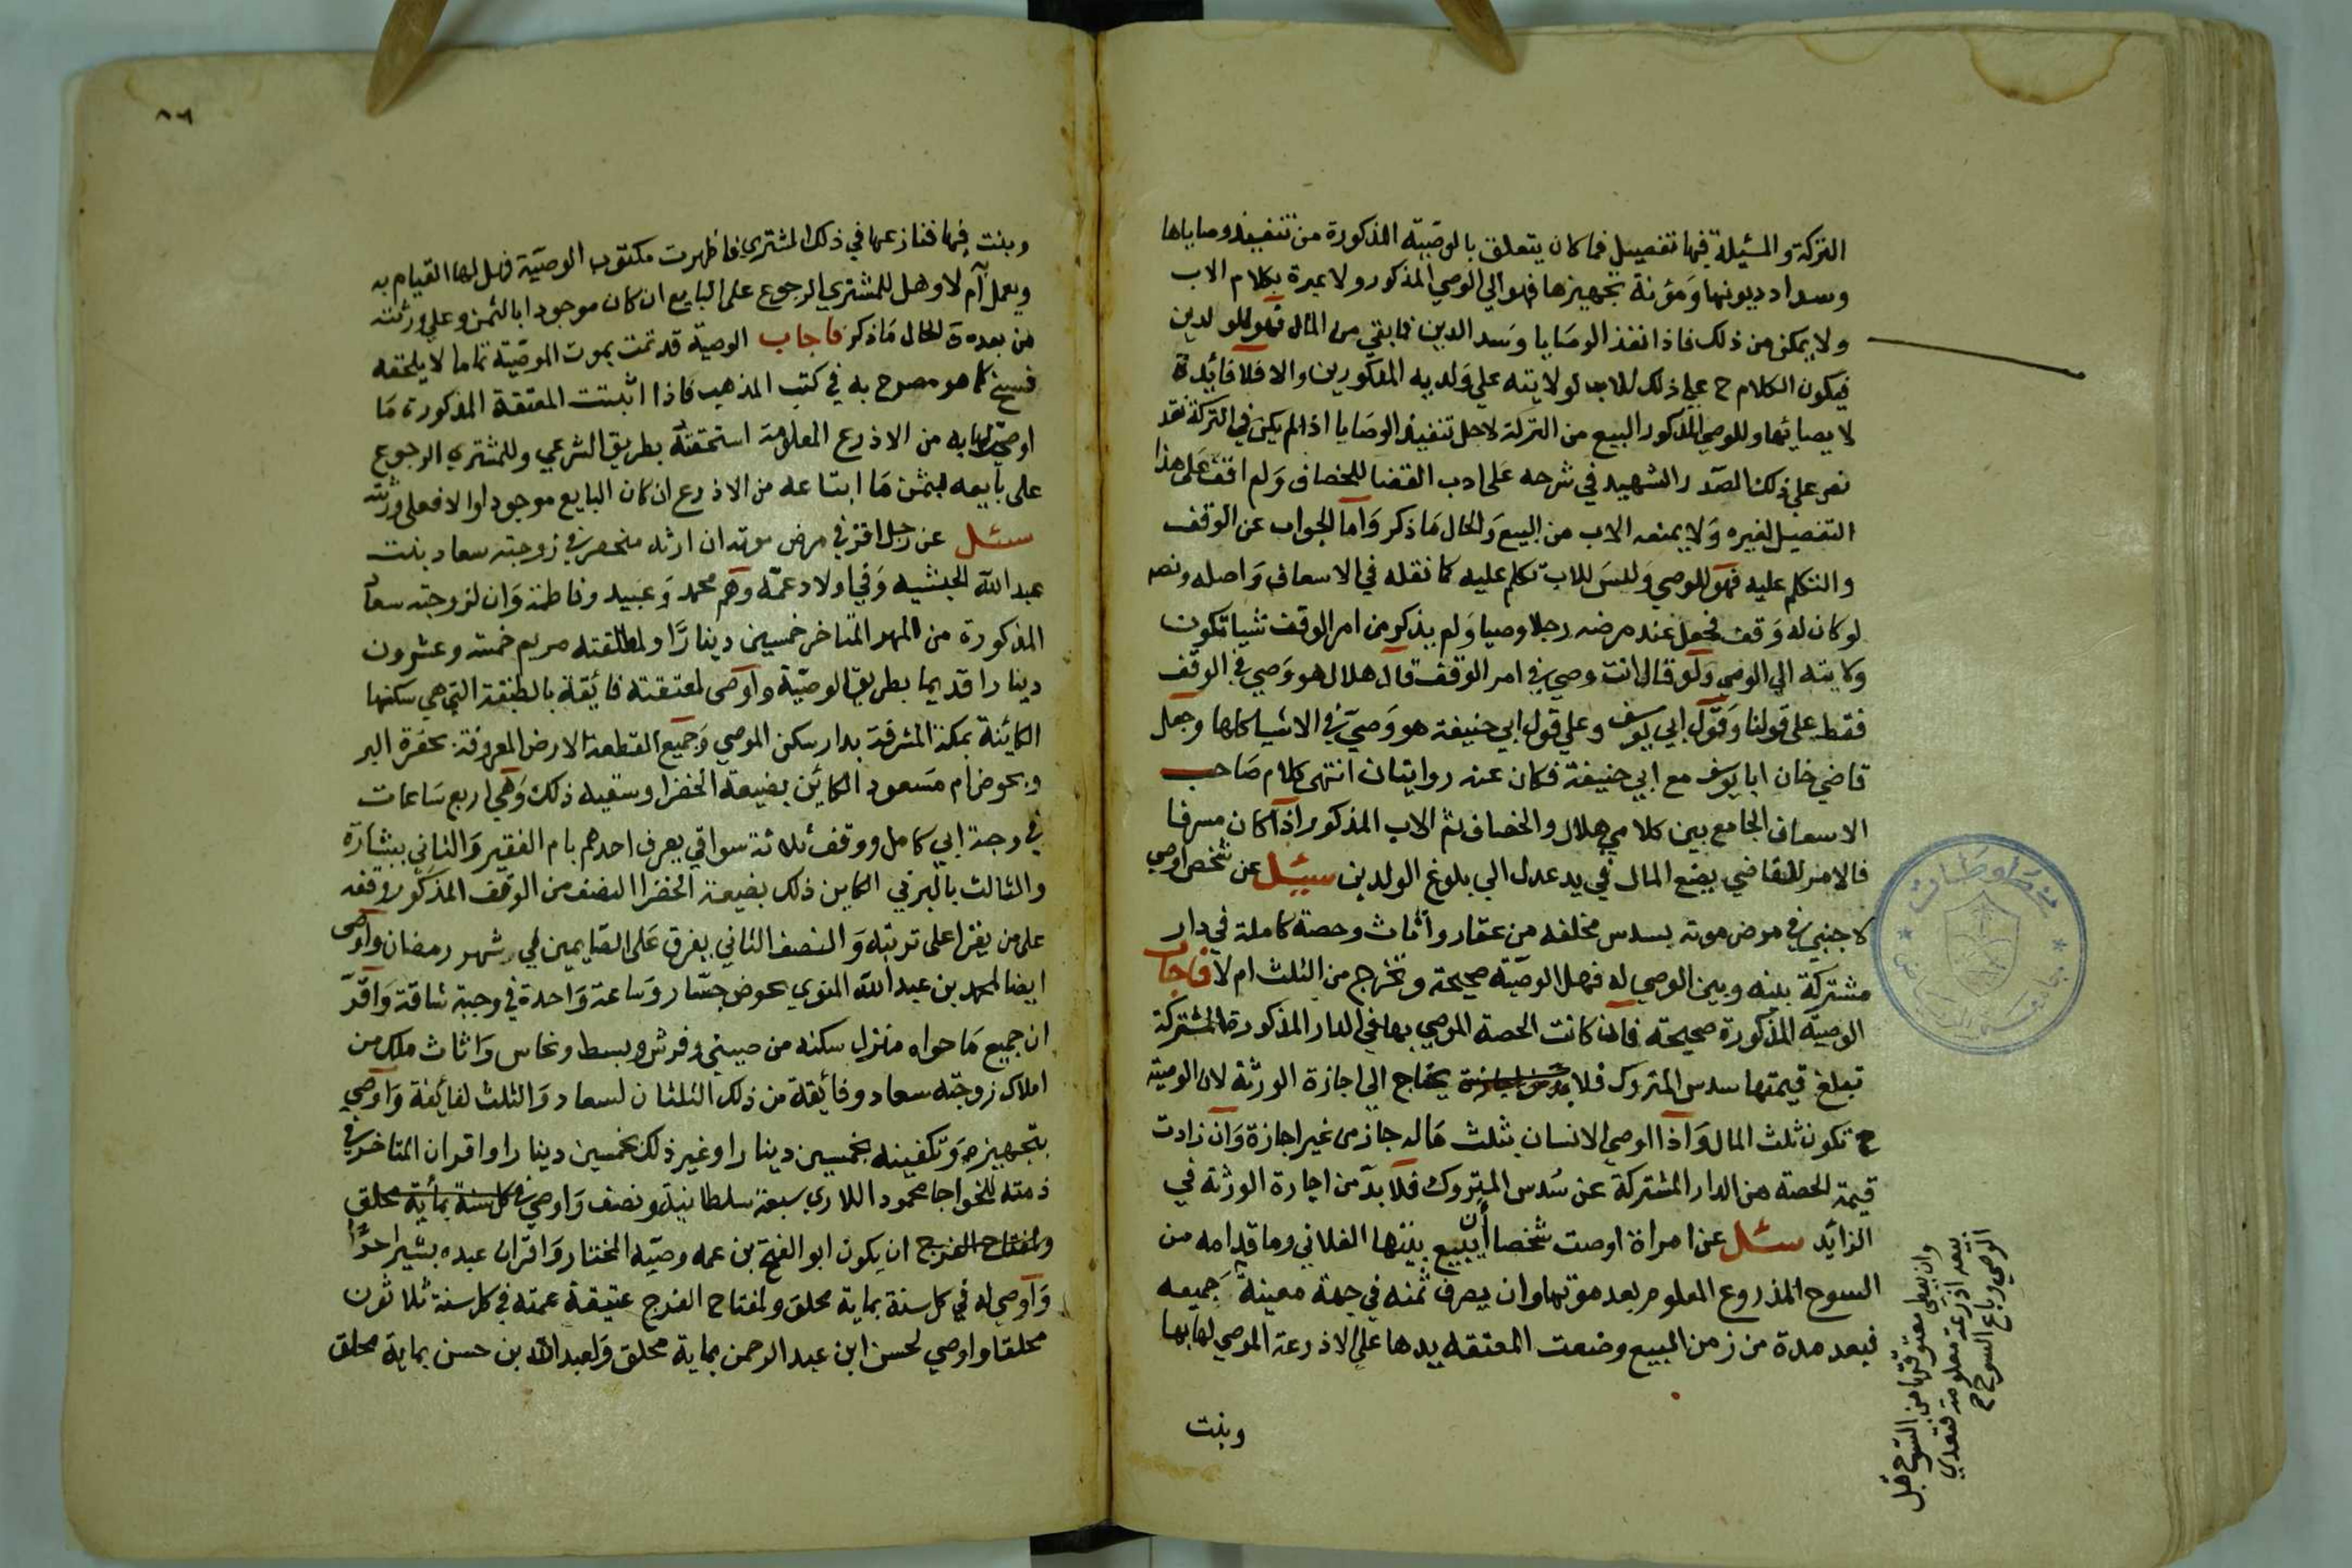 التركة والمسئلة فيها تفصيل فما كان يتعلق بالوصية المذكورة من تنفيذ وصاياها
وسداد ديونها ومؤنة تجهيزها فهو الي الوصي المذكور ولا عبرة بكلام الاب
ولا يمكن من ذلك فاذا نفذ الوصايا وسد الدين فما بقي من المال فهو للولدين
فيكون الكلام ح علي ذلك للاب لولايته علي ولديه المذكورين والا فلا فائدة
لايصائها وللوصي المذكور البيع من التركة لاجل تنفيذ الوصايا اذا لم يكن في التركة نقد
نص علي ذلك الصدر الشهيد في شرحه على ادب القضا للخصاف ولم اقف على هذا
التفصيل لغيره ولا يمنعه الاب من البيع والحال ما ذكر واما الجواب عن الوقف
والتكلم عليه فهو للوصي وليس للاب تكلم عليه كما نقله في الاسعاف واصله ونصه
لو كان له وقف فجعل عند مرضه رجلا وصيا ولم يذكر من امر الوقف شيا تكون
ولايته الي الوصي ولو قال انت وصيي في امر الوقف قال هلال هو وصي في الوقف
فقط على قولنا وقول ابي يوسف وعلي قول ابي حنيفة هو وصي في الاشيا كلها وجعل
قاضي خان ابا يوسف مع ابي حنيفة فكان عنه روايتان انتهى كلام صاحب
الاسعاف الجامع بين كلامي هلال والخصاف ثم الاب المذكور اذا كان مسرفا
فالامر للقاضي يضع المال في يد عدل الي بلوغ الولدين سئل عن شخص اوصي
لاجنبي في مرض موته بسدس مخلفه من عقار واثاث وحصة كاملة في دار
مشتركة بينه وبين الموصي له فهل الوصية صحيحة وتخرج من الثلث ام لا فاجاب
الوصية المذكورة صحيحة فان كانت الحصة الموصي بها في الدار المذكورة المشتركة
تبلغ قيمتها سدس المتروك فلا يحتاج الي اجازة الورثة لان الوصية
ح تكون ثلث المال واذا اوصي الانسان بثلث ماله جاز من غير اجازة وان زادت
قيمة الحصة من الدار المشتركة عن سدس المتروك فلا بد من اجازة الورثة في
الزائد سئل عن امراة اوصت شخصا أن يبيع بيتها الفلاني وما قدامه من
السوح المذروع المعلوم بعد موتها وان يصرف ثمنه في جهة معينة جميعه
فبعد مدة من زمن المبيع وضعت المعتقه يدها علي الاذرعة الموصي لها بها
وبنت
وان يعطي معتوقتها من السوح قبل
بيعه اذرعة معلومة فتعدي
الوصي وباع السوح
وبنت فيها فنازعها في ذلك المشتري فاظهرت مكتوب الوصية فهل لها القيام به
ويعمل به ام لا وهل للمشتري الرجوع على البايع ان كان موجودا بالثمن وعلي ورثته
من بعده والحال ما ذكر فاجاب الوصية قد تمت بموت الموصية تماما لا يلحقه
فسخ كما هو مصرح به في كتب المذهب فاذا اثبتت المعتقة المذكورة ما
اوصي لها به من الاذرع المعلومة استحقته بطريق الشرعي وللمشتري الرجوع
على بايعه بثمن ما ابتاعه من الاذرع ان كان البايع موجودا والا فعلى ورثته
سئل عن رجل اقر في مرض موته ان ارثه منحصر في زوجته سعاد بنت
عبد الله الحبشيه وفي اولاد عمه وهم محمد وعبيد وفاطمة وان لزوجته سعاد
المذكورة من المهر المتاخر خمسين دينارا ولمطلقته مريم خمسة وعشرون
دينارا قديما بطريق الوصية واوصى لمعتقته فائقة بالطبقة التي هي سكنها
الكائنة بمكة المشرفة بدار سكن الموصي وجميع القطعة الارض المعروفة بحفرة البر
وبحوض ام مسعود الكائن بضيعة الخضرا وسقيه ذلك وهي اربع ساعات
في وجبة ابي كامل ووقف ثلاثة سواقي يعرف احدهم بام الفقير والثاني ببشارة
والثالث بالبرني الكاين ذلك بضيعة الخضرا النصف من الوقف المذكور وقفه
على من يقرا على تربته والنصف الثاني يفرق على الصايمين في شهر رمضان واوصى
ايضا لمحمد بن عبد الله المنوي بحوض جسار وساعة واحدة في وجبة شاقة واقر
ان جميع ما حواه منزل سكنه من صيني وفرش وبسط ونحاس واثاث ملك من
املاك زوجته سعاد وفائقة من ذلك الثلثان لسعاد والثلث لفائقة واوصي
بتجهيزه وتكفينه بخمسين دينارا وغير ذلك بخمسين دينارا واقر ان المتاخر في
ذمته للخواجا محمود اللاري سبعة سلطانية ونصف واوصي في كل سنة بماية محلق
ولمفتاح الفرج ان يكون ابو الفتح بن عمه وصيه المختار واقر ان عبده بشير احرا
واوصي له في كل سنة بماية محلق ولمفتاح الفرج عتيقة عمته في كل سنة ثلاثون
محلقا واوصي لحسن ابن عبد الرحمن بماية محلق ولعبد الله بن حسن بماية محلق